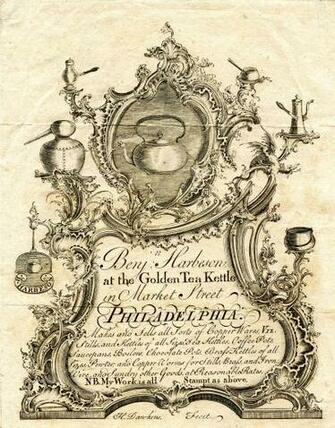 HARBESON
Benj.n Harbeson,
at the Golden Tea Kettle
in Market Street
PHILADELPHIA.
Makes and Sells all Sorts of Copper Ware, Viz.
Stills, and Kettles of all Sizes, Tea Kettles, Coffee Pots
Saucepans, Boilers, Chocolate Pots, Brass Kettles of all
Sizes, Pewter and Copper Worms for Stills, Brass, and Iron
Wire, also Sundry other Goods, at Reasonable Rates.
N.B. My Work is all Stampt as above.
H. Dawkins Fecit.